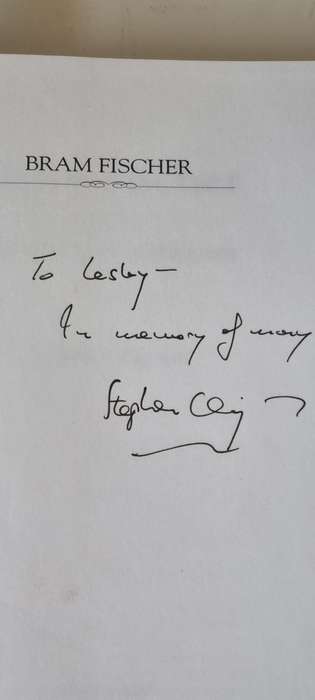 BRAM FISCHER
To Lesley –
In memory of many
Stephen